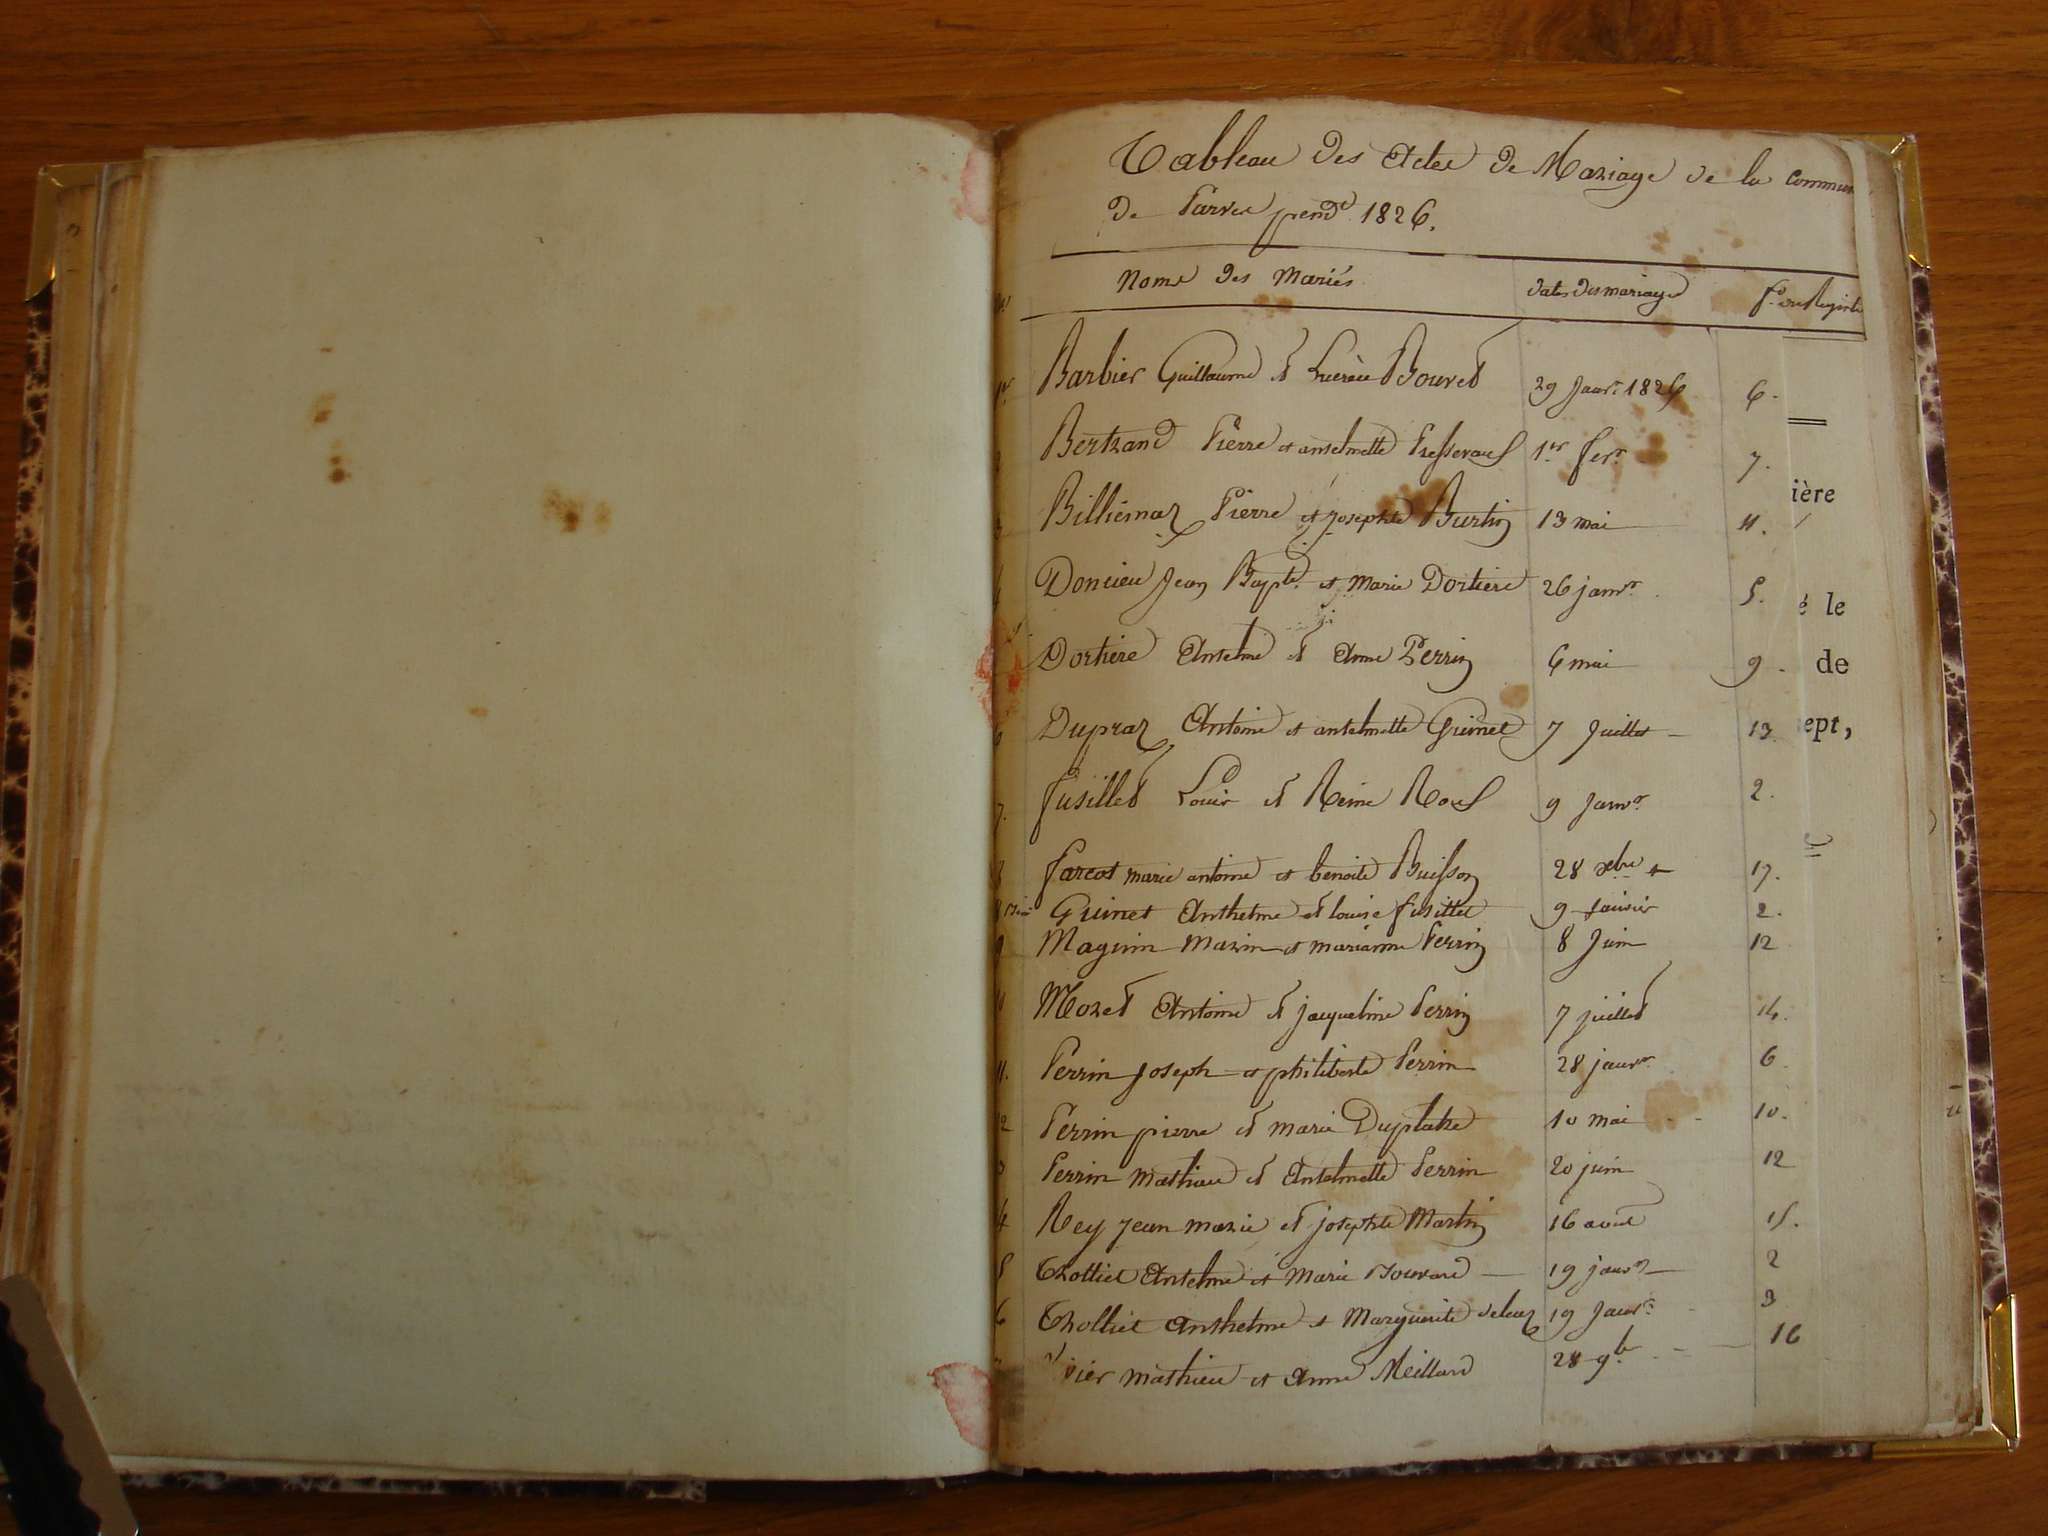 Tableau des Actes de Mariage de la commun
de Parves pend.t 1826.
Noms des Mariés dates des mariages f.o du Registre
1er Barbier Guillaume et Bouvet 29 Janv.r 1826 6.
2 Bertrand Pierre et anselmette 1er fev.r 7.
3 Billiemaz Pierre et Josephte Burtin 13 mai 11.
4 Doncieu Jean Bapte. et Marie Dortiere 26 janv.r 5.
Dortiere Antelme et Anne Perrin 6 mai 9.
6 Dupraz Antoine et antelmette Guinet 7 Juillet 13.
7. fusillet Louis et Reine Roux 9 Janv.r 2.
8 farcot marie antoine et benoite Buisson 28 xbre 17.
8 bis Guinet Anthelme et louise fusillet 9 Janvier 2.
9 Maguin Marin et marianne Perrin 8 Juin 12
Moret Antoine et jacqueline Perrin 7 juillet 14.
11. Perrin Joseph et philiberte Perrin 28 janv.r 6.
2 Perrin pierre et marie Duplatre 10 mai 10.
3 Perrin mathieu et Antelmette Perrin 20 juin 12
4 Rey jean marie et josephte Martin 16 aout 15.
5 Trolliet Antelme et Marie Bouvard 19 janv.r 2
6 Trolliet Anthelme et Marguerite 19 Janv.r 3
mathieu et Anne Meillard 28 9b.re 16
ière
é le
de
sept,